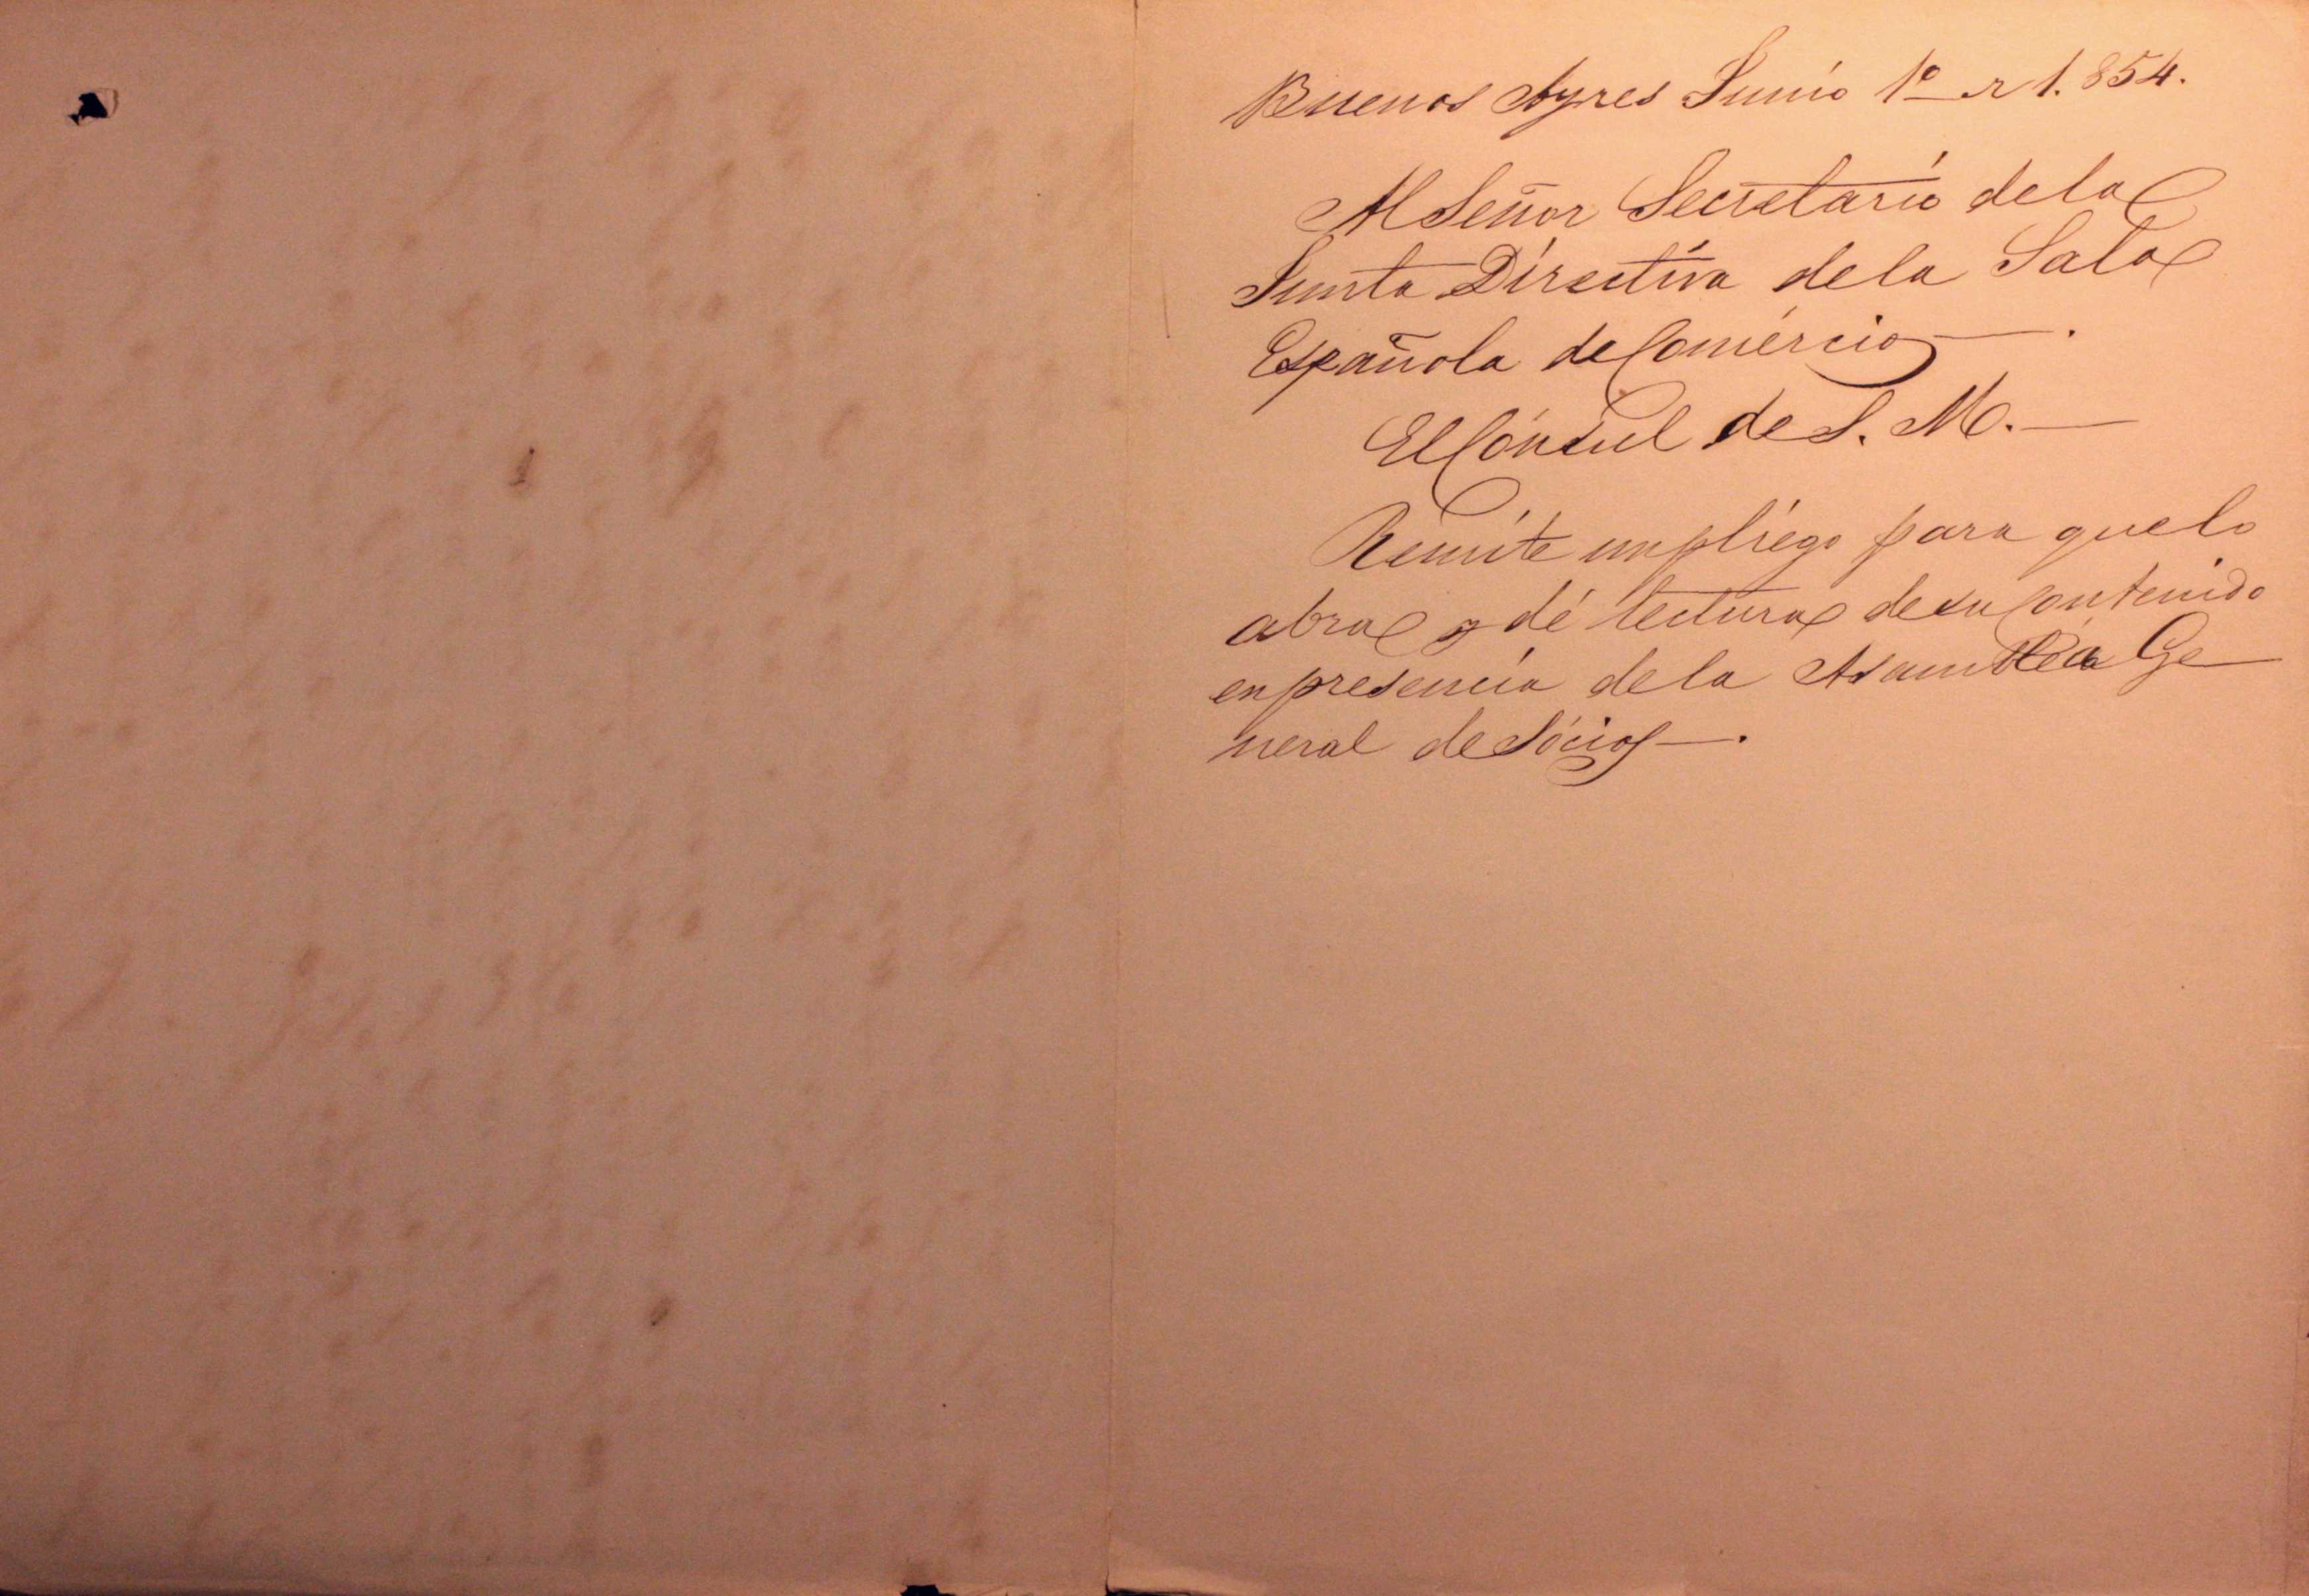 Buenos Ayres Junio 1º de 1.854.
Al Señor Secretario de la
Junta Directiva de la Sala
Española de Comercio.
El Cónsul de S. M.
Remite un pliego para que lo
abra y dé lectura de su Contenido
en presencia de la Asamblea Ge
neral de Sócios.